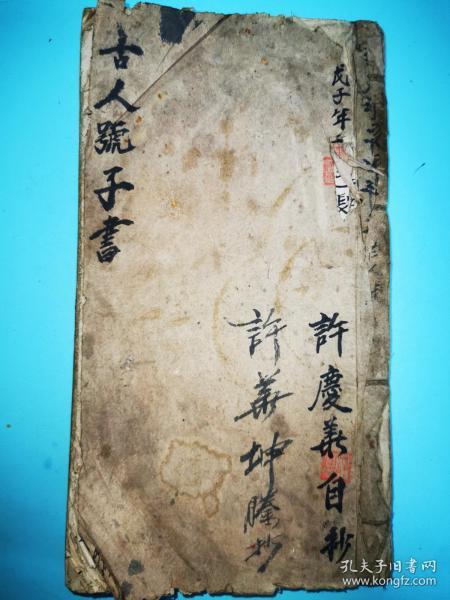 戊子年
許慶義自抄
許華坤謄抄
古人號子書
孔夫子旧书网
www.kongfz.com